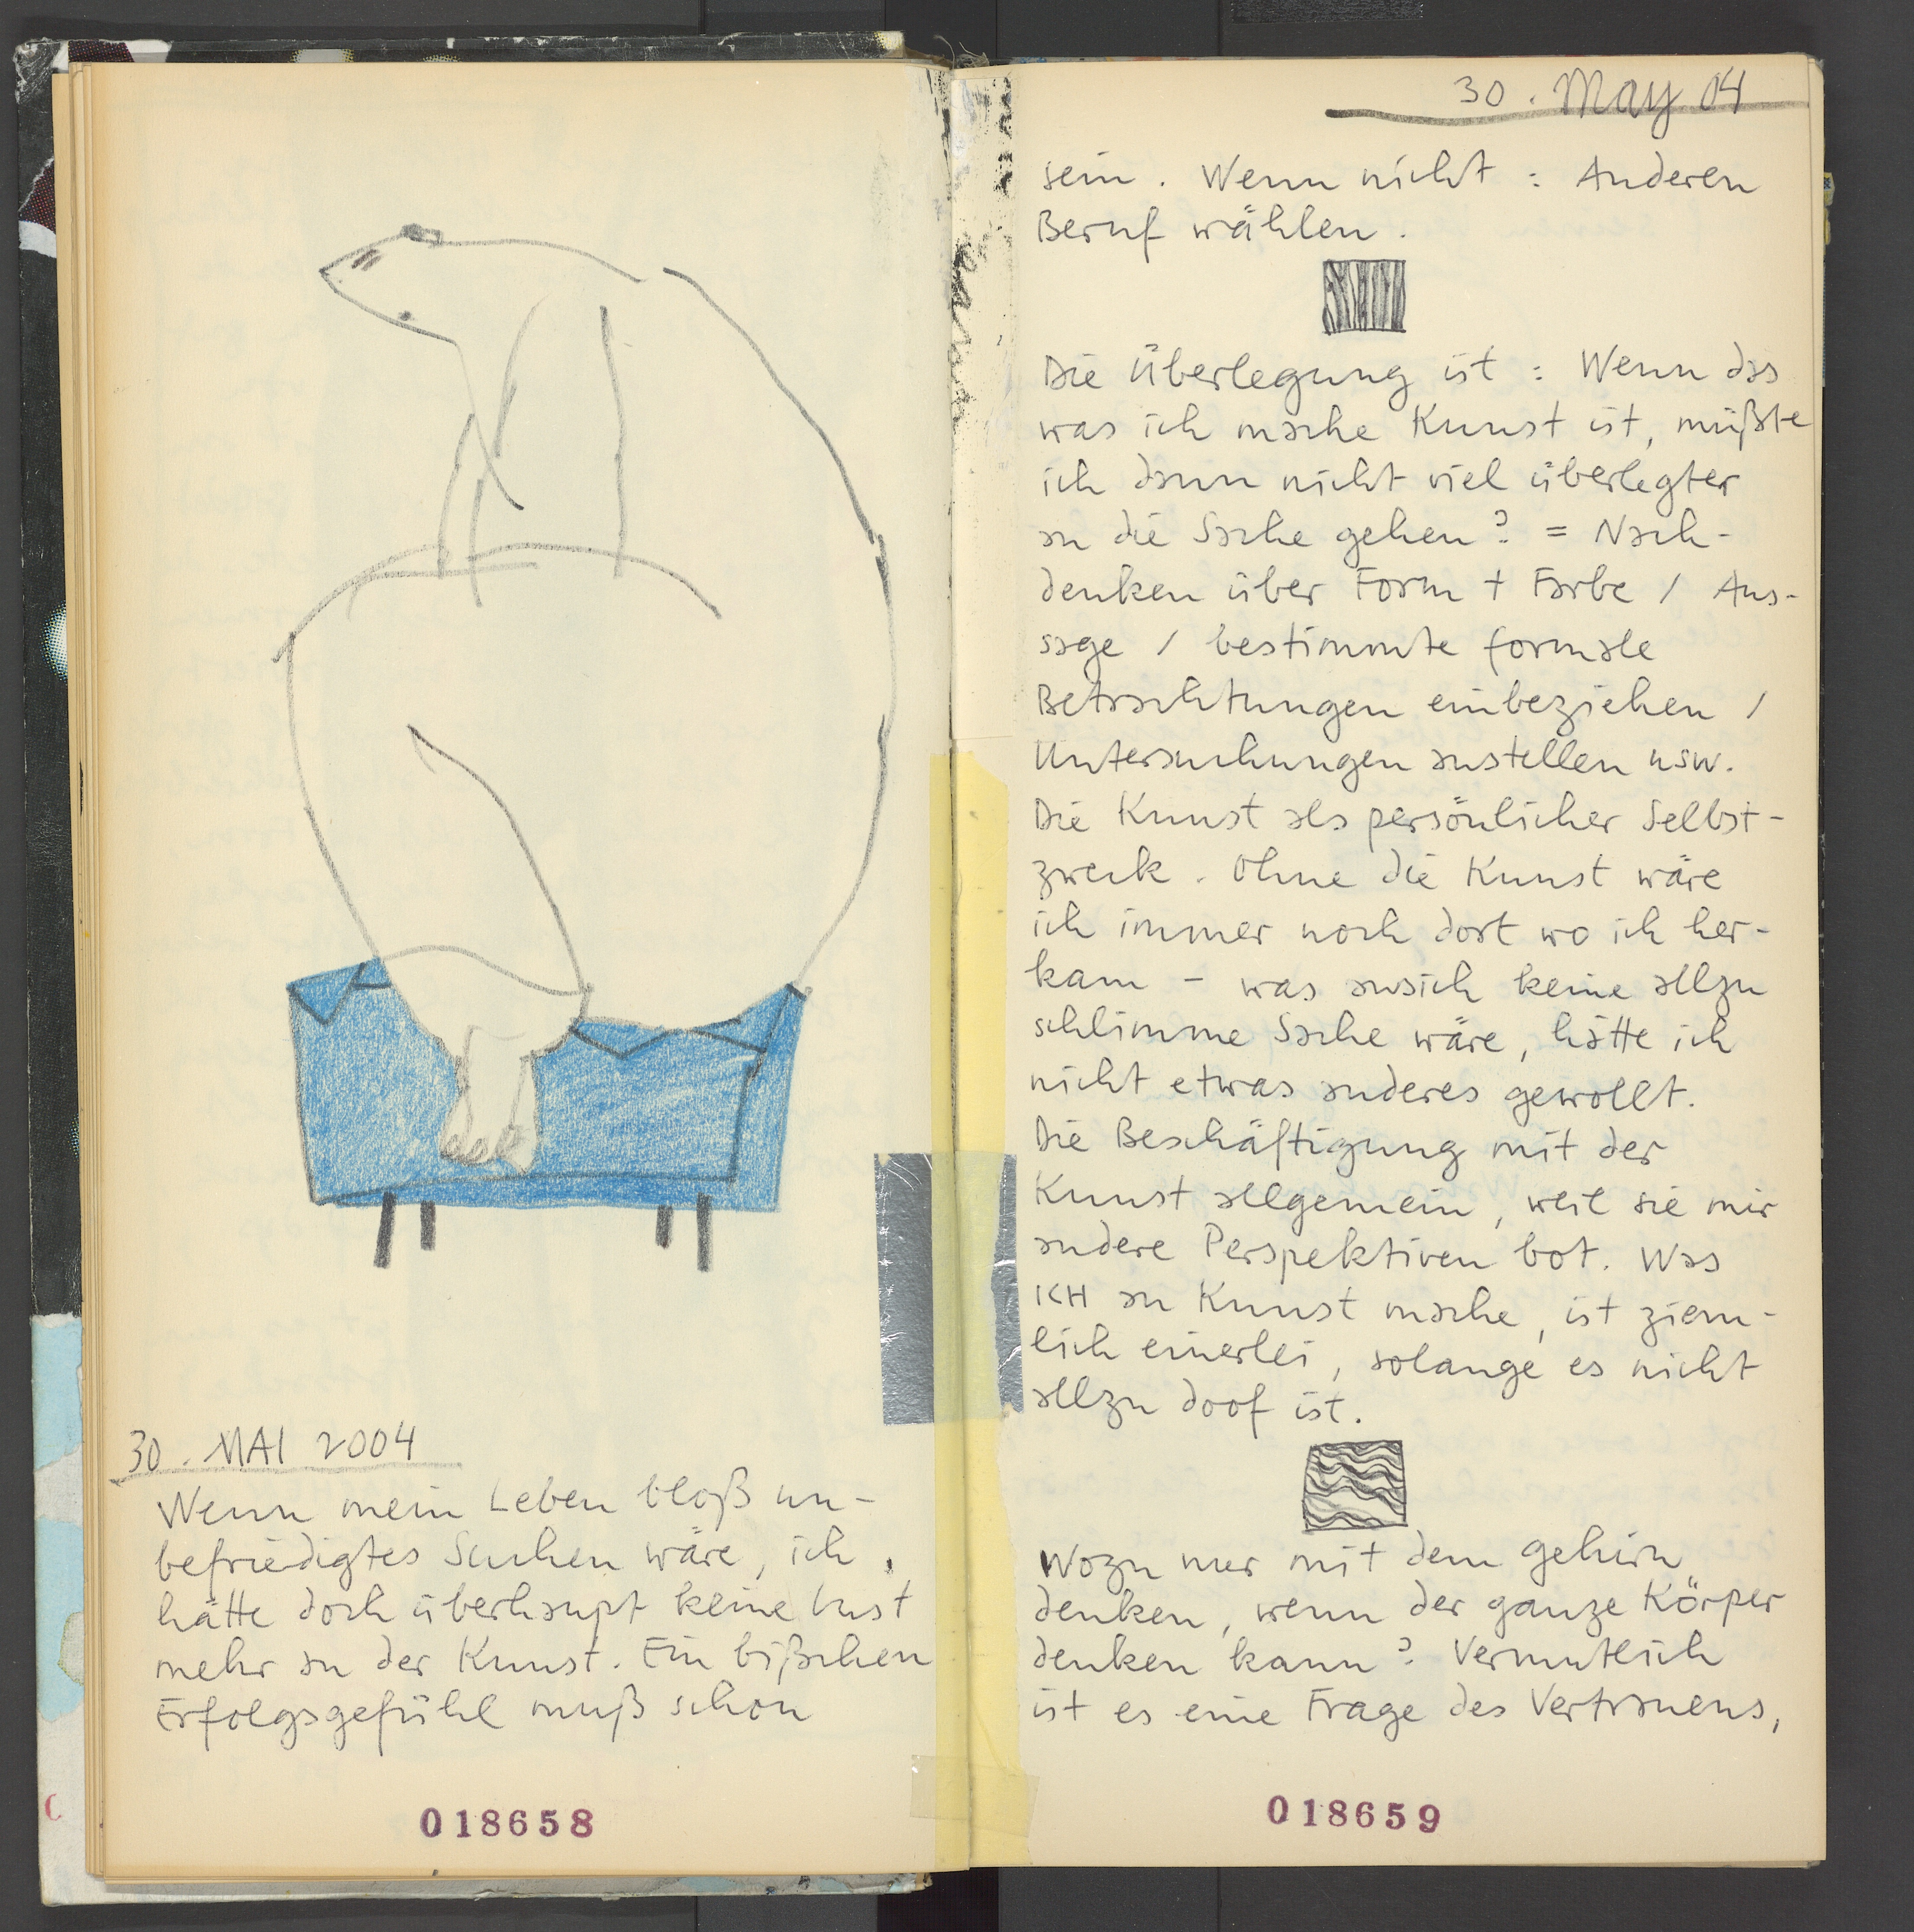 30. MAI 2004
Wenn mein Leben bloß un-
befriedigtes Suchen wäre, ich
hätte doch überhaupt keine Lust
mehr an der Kunst. Ein bißchen
Erfolgsgefühl muß schon
018658
30. May 04
sein. Wenn nicht: Anderen
Beruf wählen.
Die Überlegung ist: Wenn das
was ich mache Kunst ist, müßte
ich dann nicht viel überlegter
an die Sache gehen? = Nach-
denken über Form + Farbe / Aus-
sage / bestimmte formale
Betrachtungen einbeziehen /
Untersuchungen anstellen usw.
Die Kunst als persönlicher Selbst-
zweck. Ohne die Kunst wäre
ich immer noch dort wo ich her-
kam - was ansich keine allzu
schlimme Sache wäre, hätte ich
nicht etwas anderes gewollt.
Die Beschäftigung mit der
Kunst allgemein, weil sie mir
andere Perspektiven bot. Was
ICH an Kunst mache, ist ziem-
lich einerlei, solange es nicht
allzu doof ist.
Wozu nur mit dem gehirn
denken, wenn der ganze Körper
denken kann? Vermutlich
ist es eine Frage des Vertrauens,
018659